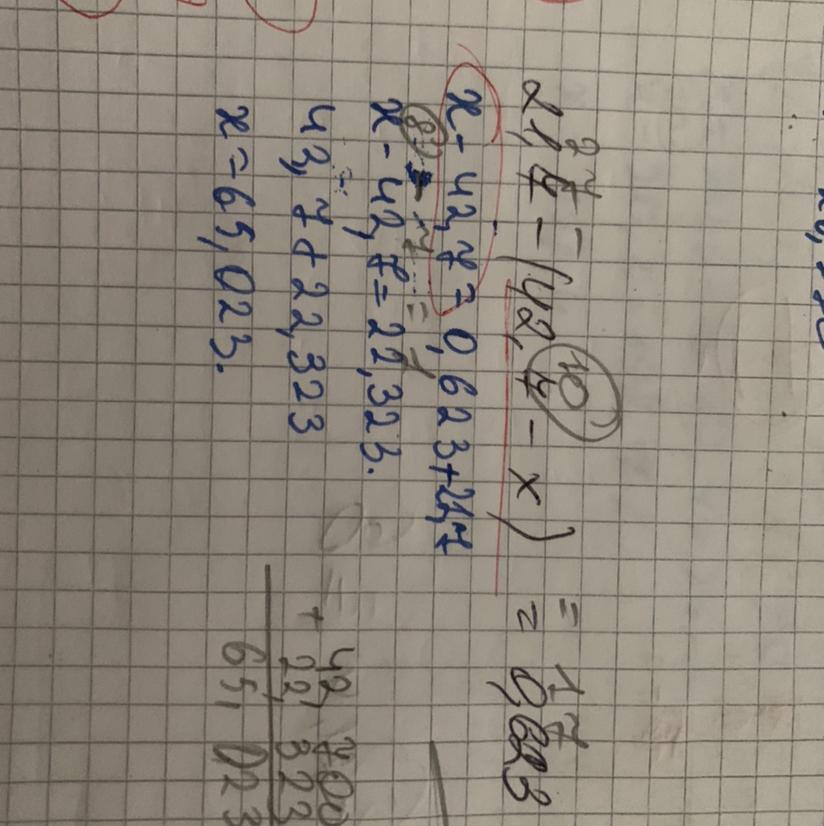 21,7 - (42,7 - x) = 0,623
x - 42,7 = 0,623 + 21,7
x - 42,7 = 22,323.
43,7 + 22,323
x = 65,023.
10
8 - 7 = 1
27 - = 17
42,700
+ 22,323
65,023